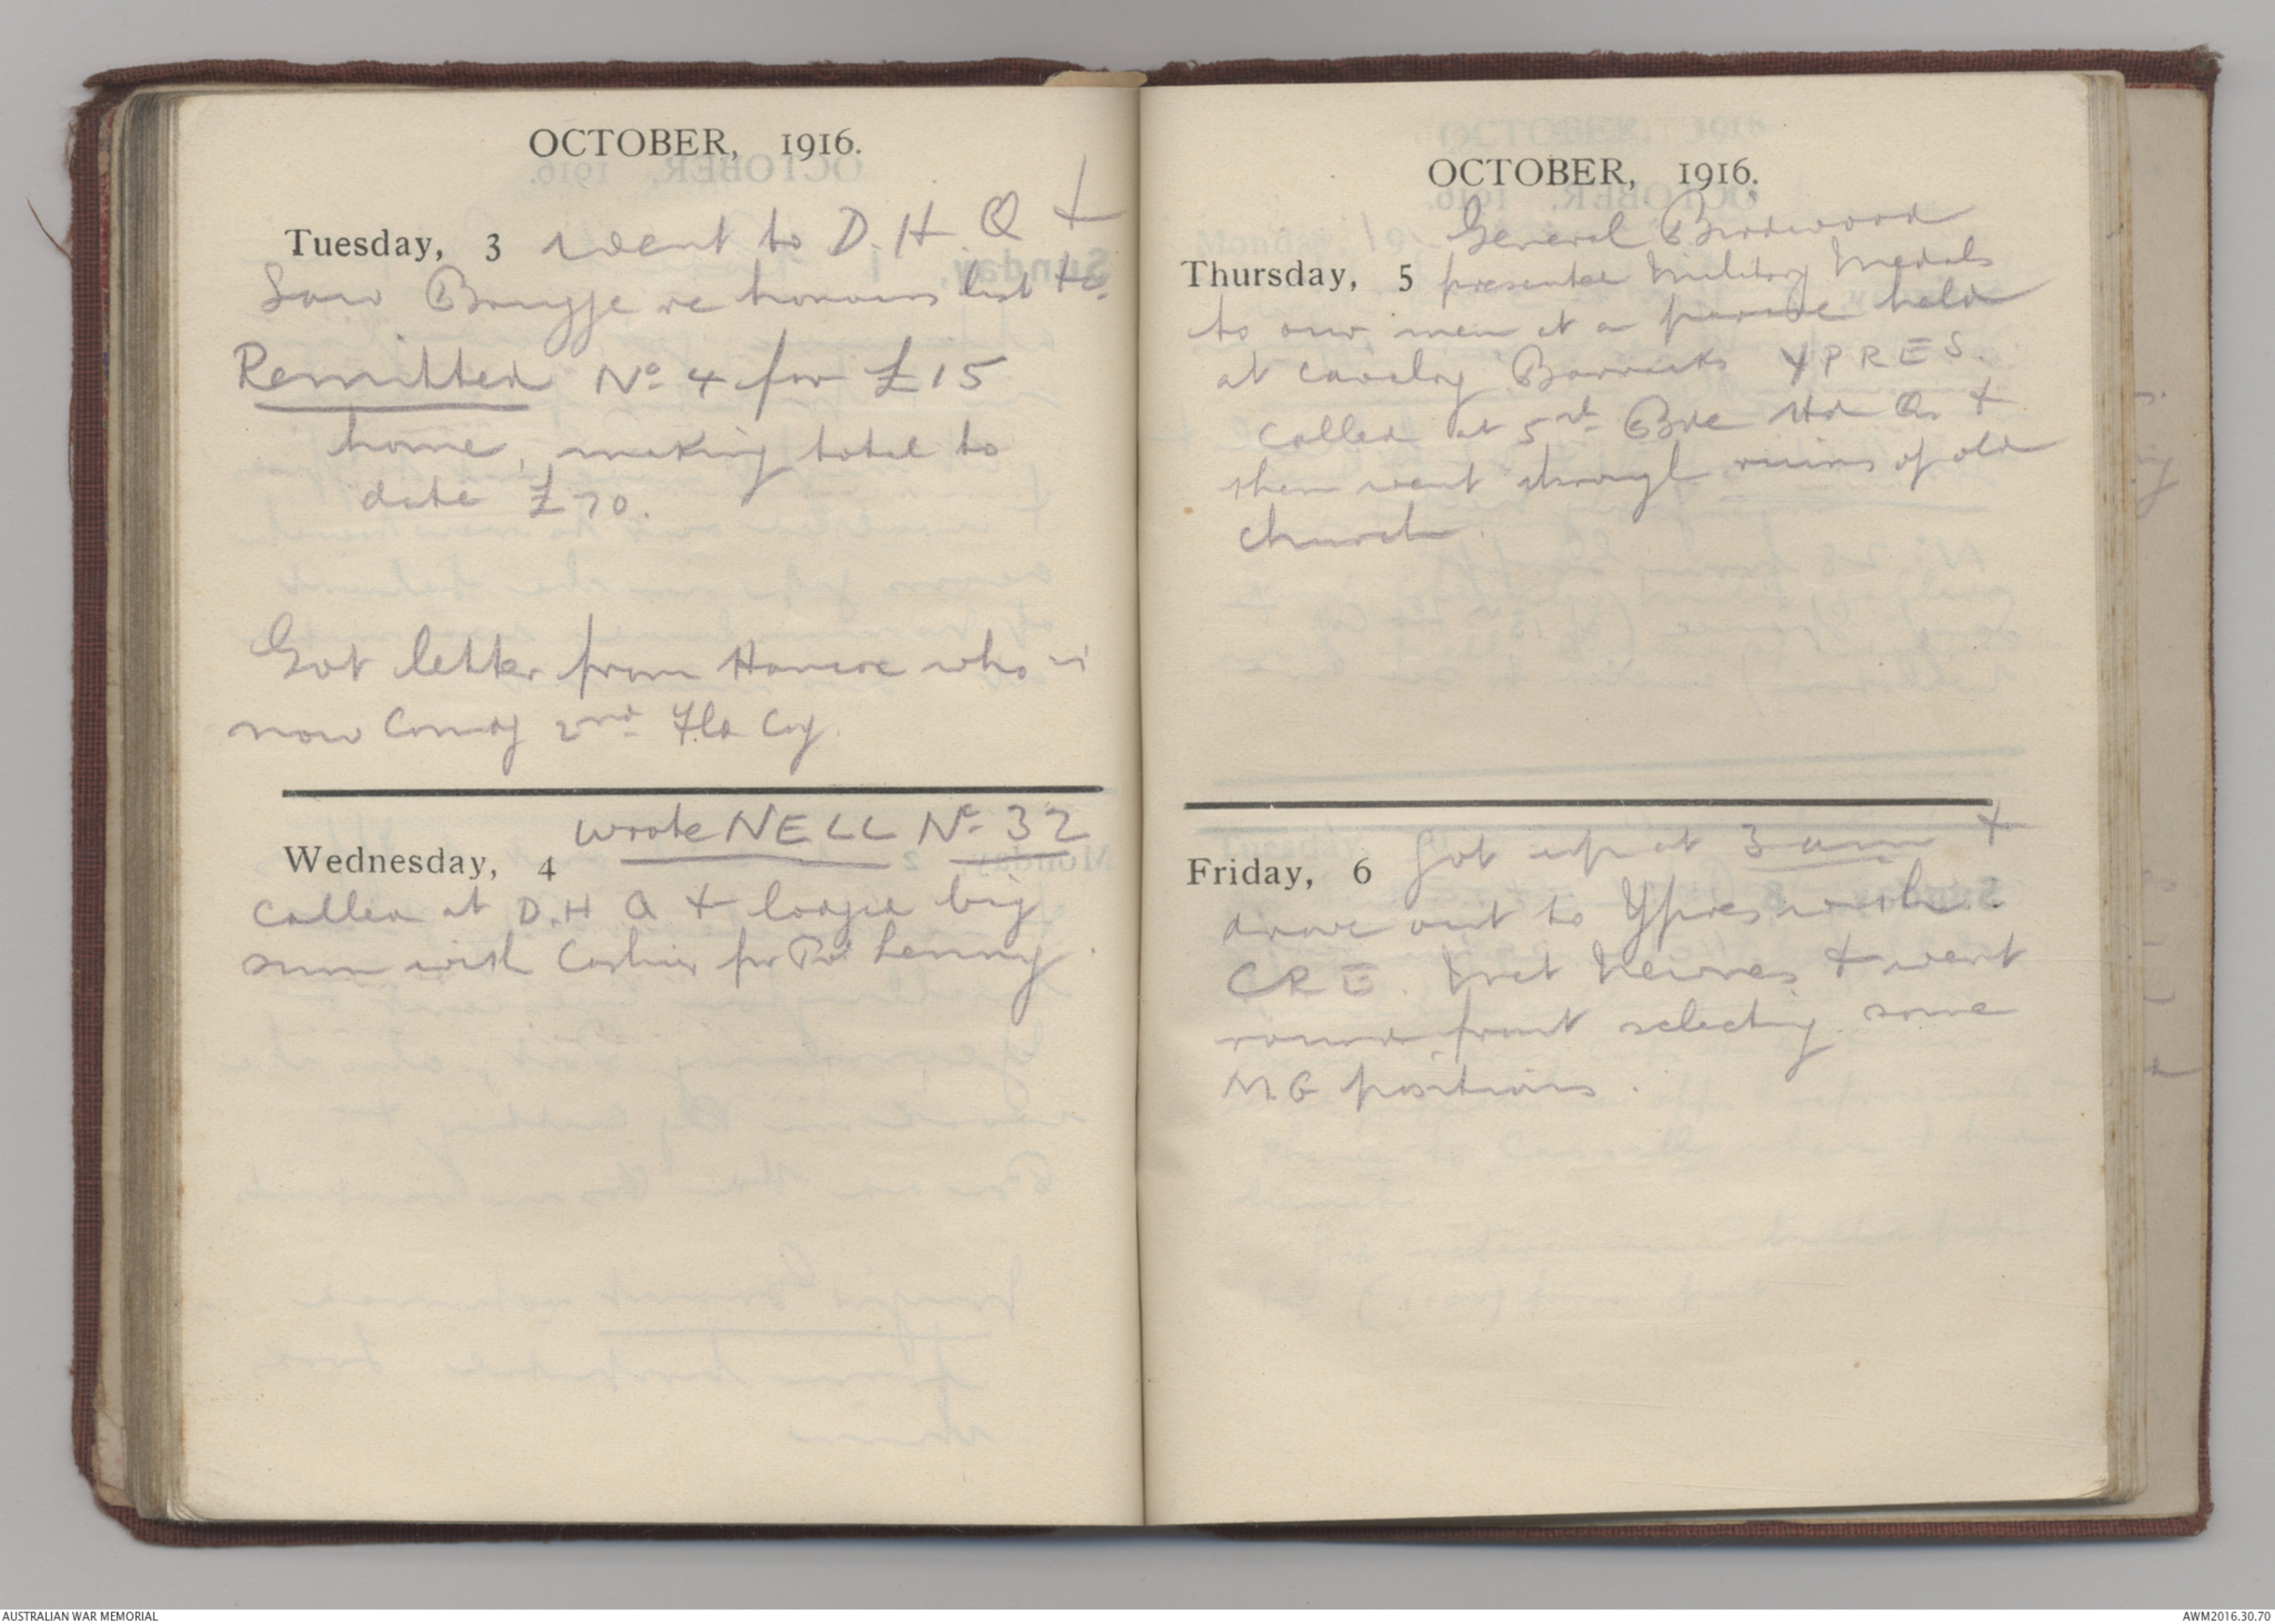 OCTOBER, 1916.
Tuesday, 3 went to D.H.Q +
Saw re honours list etc.
Remitted No 4 for £15
home, making total to
date £70.
Got letter from who is
now Comdg 2nd Fld Coy.
wrote NELL No 32
Wednesday, 4
called at D.H Q + lodged big
sum with Cashier for
OCTOBER, 1916.
General Birdwood
Thursday, 5 presented Military Medals
to our men at a parade held
at Cavalry Barracks YPRES.
Called at 5th Bde Hd Qrs +
then went through ruins of old
church.
Friday, 6 Got up at 3 am +
drove out to Ypres with
CRE. Met + went
round front selecting some
M.G positions.
AUSTRALIAN WAR MEMORIAL
AWM2016.30.70